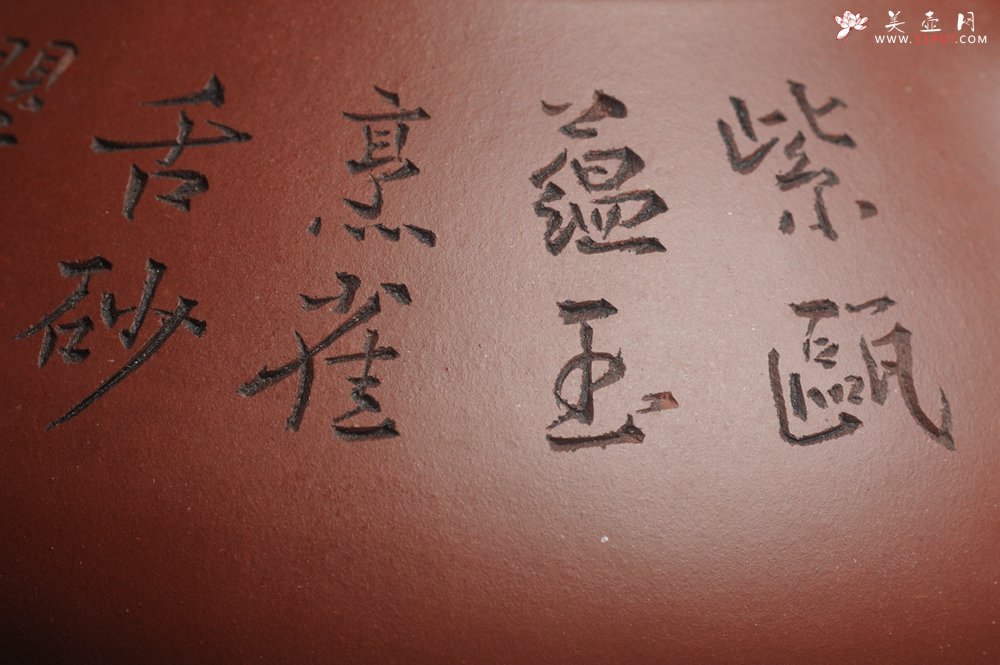 紫甌
蘊玉
烹雀
舌砂
美壶网
WWW.51POT.COM